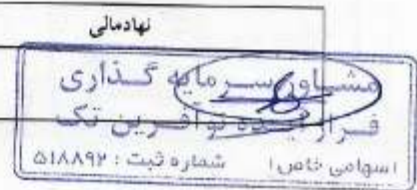 نهادمالی
مشاور سرمایه گذاری
فراز ایده نوآفرین تک
(سهامی خاص) شماره ثبت : ۵۱۸۸۹۲